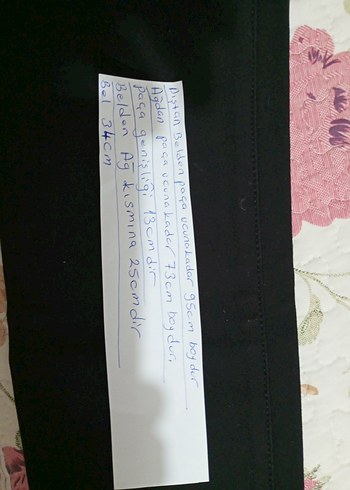 Dıştan Belden paça ucuna kadar 95cm boydur
Ağdan paça ucuna kadar 73cm boydur.
paça genişliği 13cmdir
Belden Ağ kısmına 25cmdir
Bel 34cm